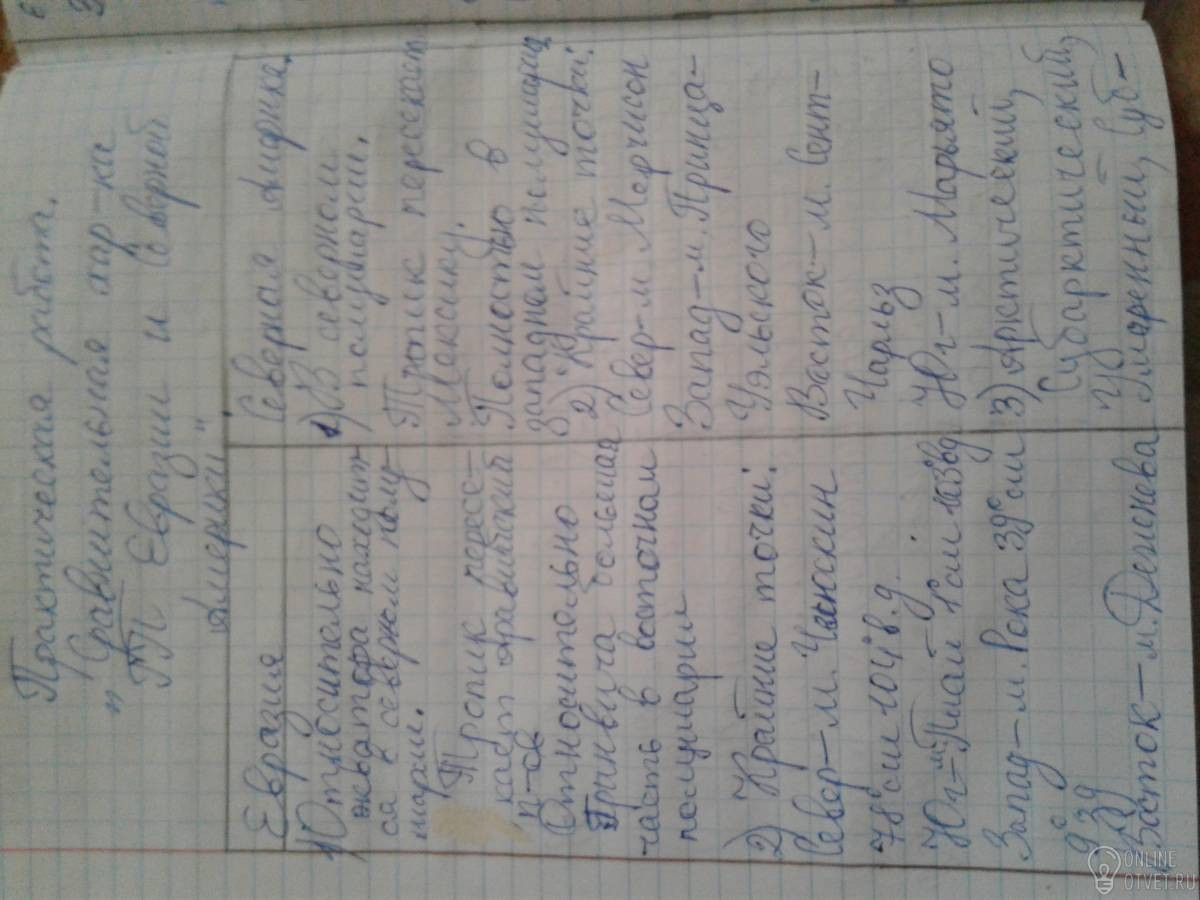 Практическая работа.
"Сравнительная хар-ка
ГП Евразии и Северной
Америки"
Евразия
1) Относительно
экватора находит-
ся в северном полу-
шарии.
Тропик пересе-
кает аравийский
п-ов
Относительно
Гринвича большая
часть в восточном
полушарии
2) Крайние точки:
Север-м. Челюскин
78° сш 104° в.д.
Юг-м Пиай 1° сш 103° вд
Запад-м. Рока 39° сш
9° зд
Восток-м. Дежнева
Северная Америка.
1) В северном
полушарии.
Тропик пересекает
Мексику.
Полностью в
западном полушарии
2) Крайние точки:
Север-м Мерчисон
Запад-м. Принца-
Уэльского
Восток-м. Сент-
Чарльз
Юг-м. Марьято
3) Арктический,
Субарктический,
Умеренный, Суб-
ONLINE
OTVET.RU